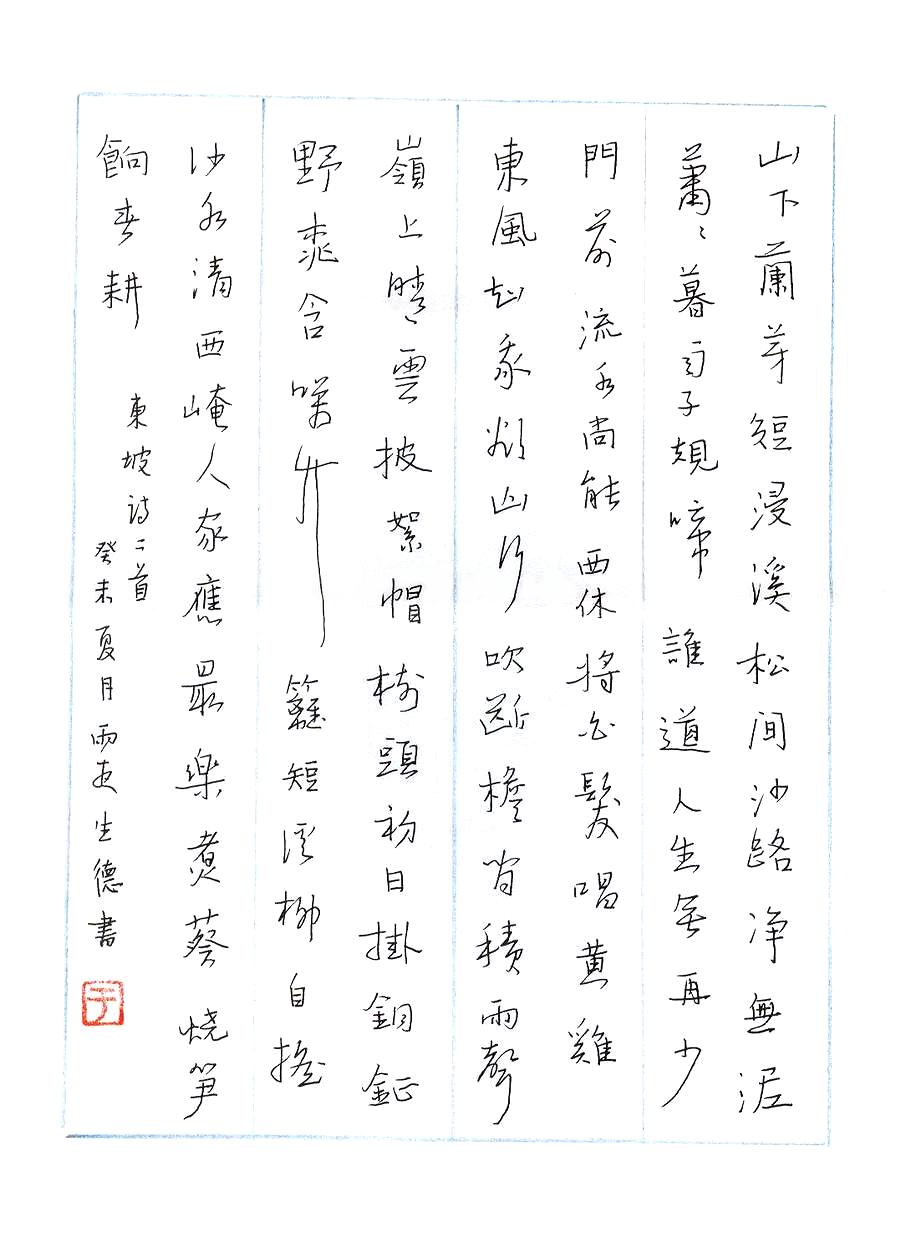 山下蘭芽短浸溪松间沙路净無泥
蕭〻暮雨子規啼誰道人生無再少
門前流水尚能西休將白髮唱黄雞
東風知我欲山行吹斷檐間積雨聲
嶺上晴雲披絮帽樹頭初日掛銅鉦
野桃含笑竹籬短溪柳自摇
沙水清西崦人家應最樂煮葵烧笋
餉春耕
東坡詩二首
癸未夏月雨夜生德書